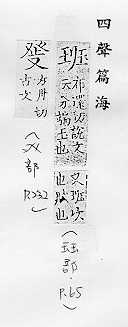 四聲篇海
班
布還切說文
云分瑞玉也
又班次
也賦也
(玨部 P.65)
方月切
古文
部
P.232)